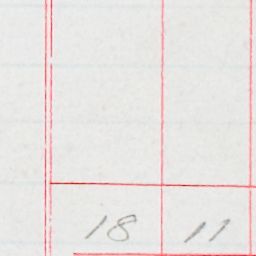 18 11